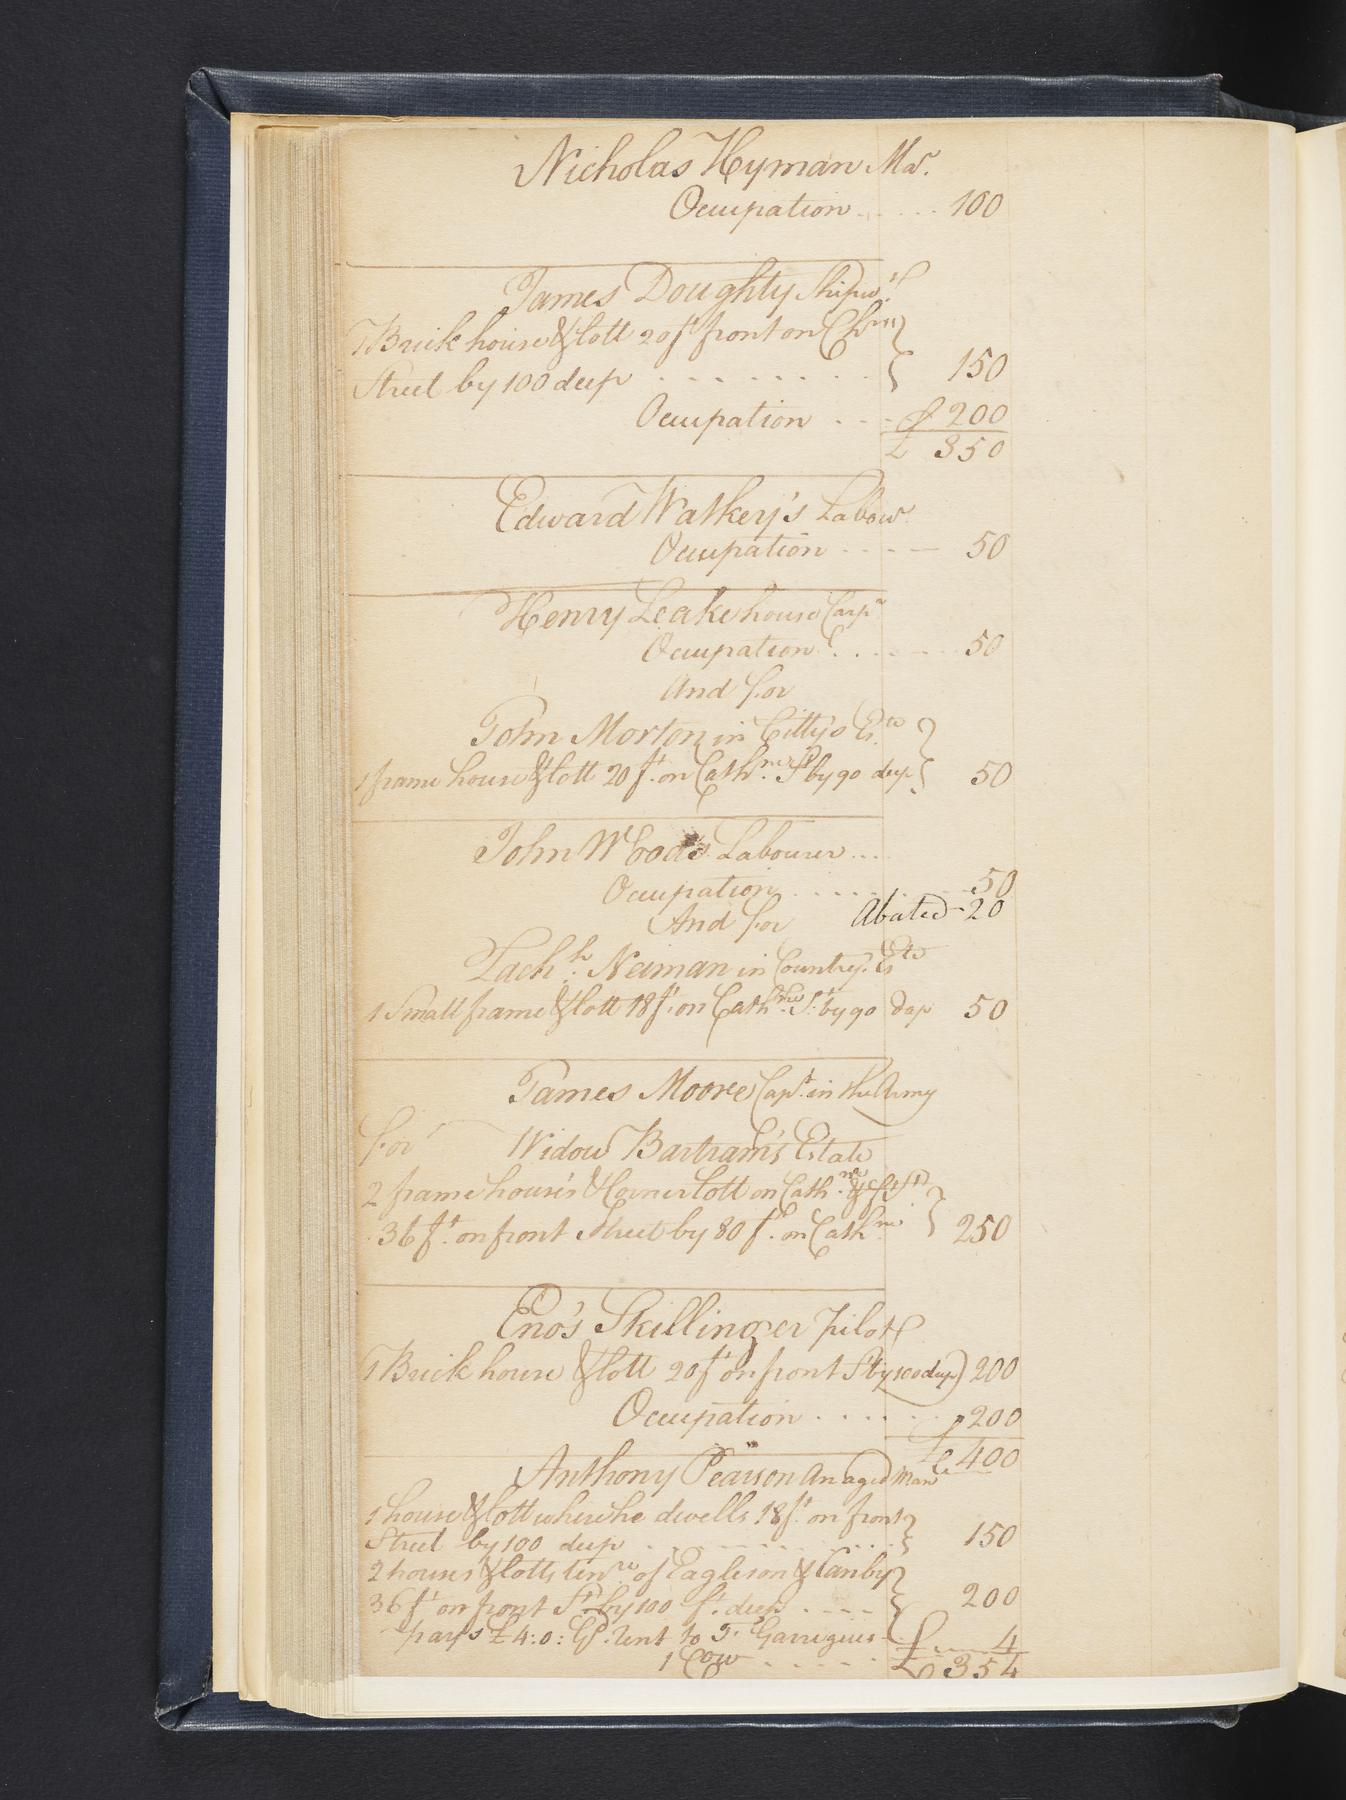 Nicholas Hyman Mar.
Ocupation ..... 100
James Doughty Shipwt
1 Brick house & lott 20 ft front on Chrn
Street by 100 deep ........ 150
Ocupation ... 200
£ 350
Edward Watkery's Labour
Ocupation ---- 50
Henry Leake house Carpr
Ocupation .... 50
And for
John Morton in Citty's Este
1 frame house & lott 20 ft. on Cathne St by 90 deep 50
John Woods Labourer ...
Ocupation ...... 50
And for Abated - 20
Zachh. Neiman in Country. Este
1 Small frame & lott 18 ft. on Cathne. St. by 90 Dap 50
James Moore Capt. in the Army
for Widow Bartram's Estate
2 frame house's & Corner lott on Cathne &
36 ft. on front Street by 80 ft. on Cathne 250
Eno's Skillinger Pilot
1 Brick house & lott 20 ft on front St by 100 deep) 200
Ocupation ...... 200
£ 400
Anthony Pearson An aged Man
1 house & lott where he dwells 18 ft. on front
Street by 100 deep ........ 150
2 houses & lotts tenre of Eagleson & Canby
36 ft on front St. by 100 ft. deep .---- 200
pays £4:0: Gd. Rent to Garrigues
1 Cow ----- 4
£ 354